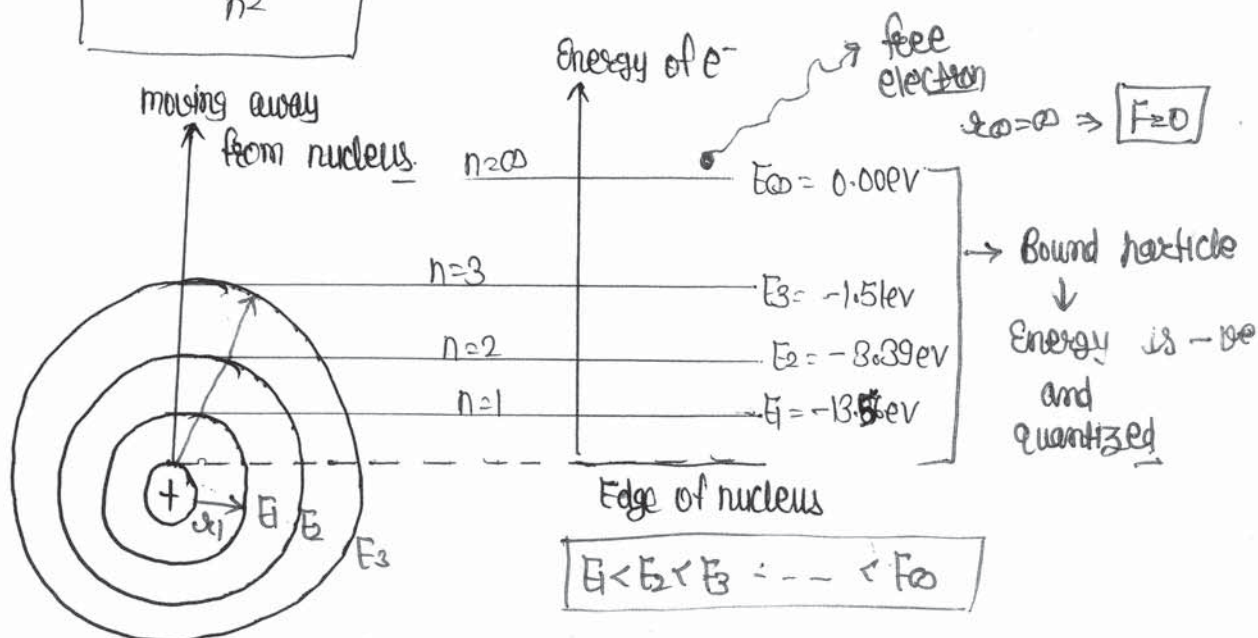 n²
moving away
from nucleus.
Energy of e⁻
free
electron
r∞=∞ ⇒ F=0
n=∞
E∞ = 0.00eV
n=3
E3= -1.51eV
n=2
E2= -3.39eV
n=1
E1= -13.56eV
→ Bound particle
↓
Energy is -ve
and
quantized
+
r1
E1
E2
E3
Edge of nucleus
E1 < E2 < E3 - - - - < E∞